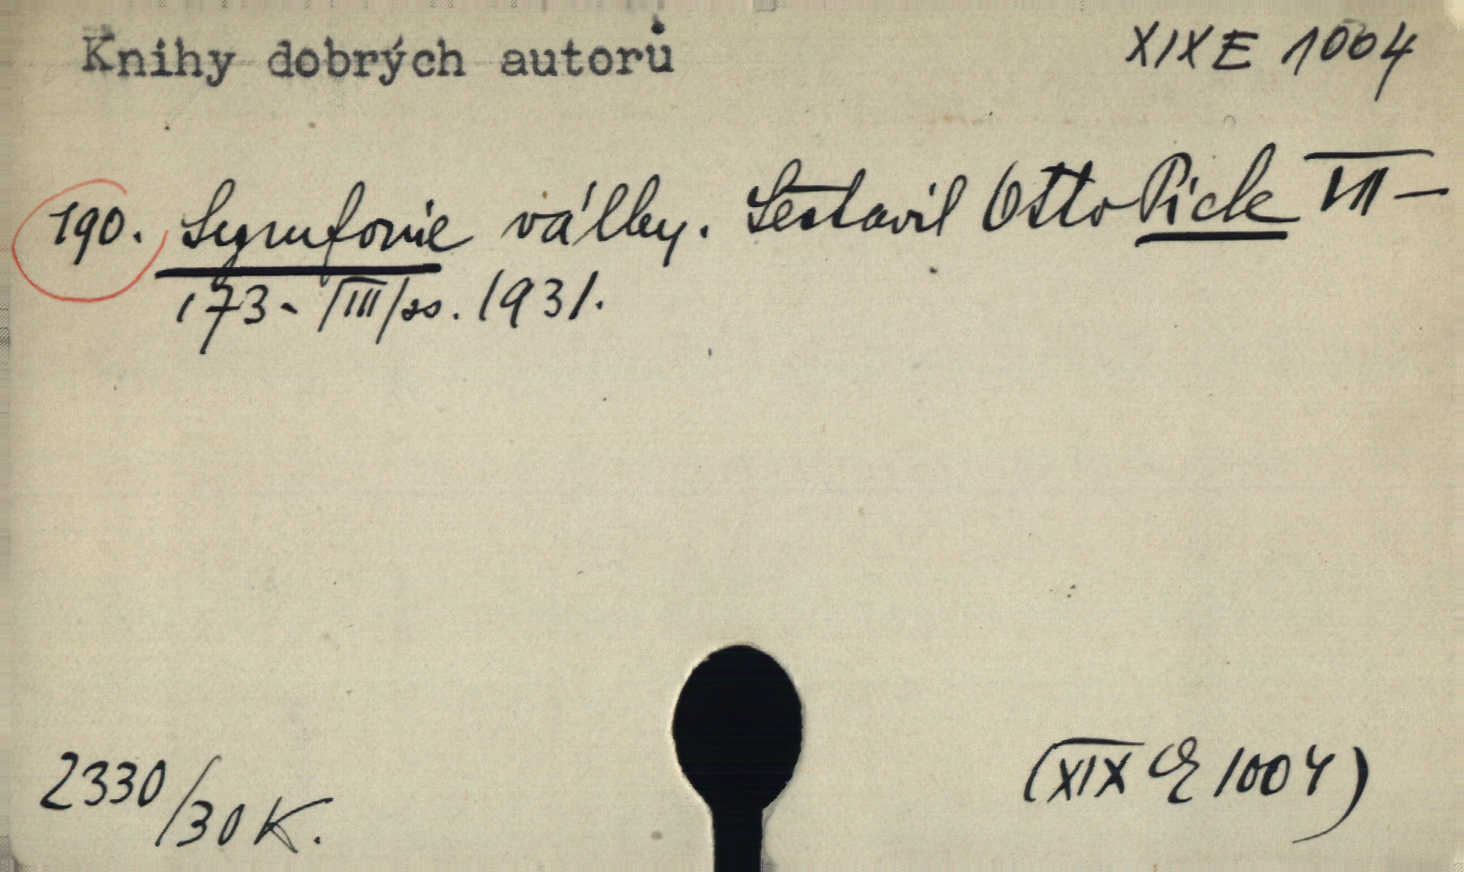 Knihy dobrých autorů
XIX E 1004
190. Symfonie války. Sestavil Otto Pick VII-
173-/III/ss. 1931.
2330/30 K.
(XIX E 1004)